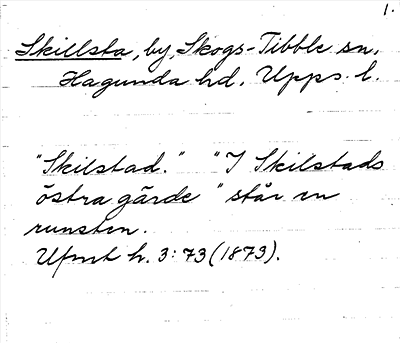 1.
Skillsta, by, Skogs-Tibble sn,
Hagunda hd. Upps. l.
"Skilstad." "I Skilstads
östra gärde" står en
runsten.
Ufmt h. 3: 73 (1873).